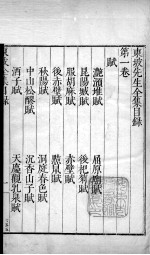 東坡先生全集目錄
第一卷
賦
灩澦堆賦 屈原廟賦
昆陽城賦 後杞菊賦
服胡麻賦 赤壁賦
後赤壁賦 黠鼠賦
秋陽賦 洞庭春色賦
中山松醪賦 沉香山子賦
酒子賦 天慶觀乳泉賦